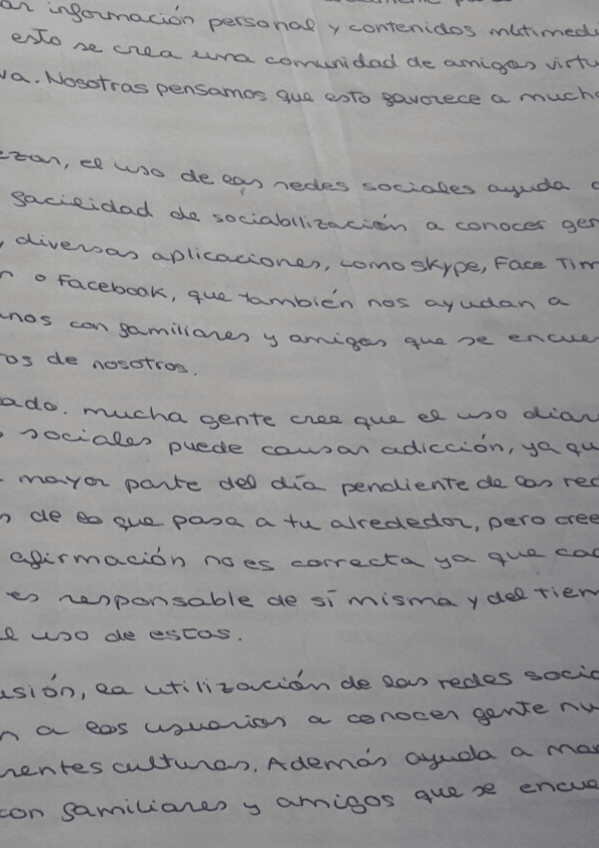 ar información personal y contenidos multimedi
esto se crea una comunidad de amigos virtu
va. Nosotras pensamos que esto favorece a mucho
ezar, el uso de las redes sociales ayuda a
facilidad de sociabilización a conocer gen
, diversas aplicaciones, como Skype, Face Tim
n o Facebook, que también nos ayudan a
nos con familiares y amigos que se encue
os de nosotros.
ado. mucha gente cree que el uso diar
s sociales puede causar adicción, ya qu
mayor parte del día pendiente de las red
s de lo que pasa a tu alrededor, pero cree
afirmación no es correcta ya que cad
es responsable de sí misma y del tiem
el uso de estas.
usión, la utilización de las redes socia
n a los usuarios a conocer gente nu
rentes culturas. Además ayuda a man
con familiares y amigos que se encue